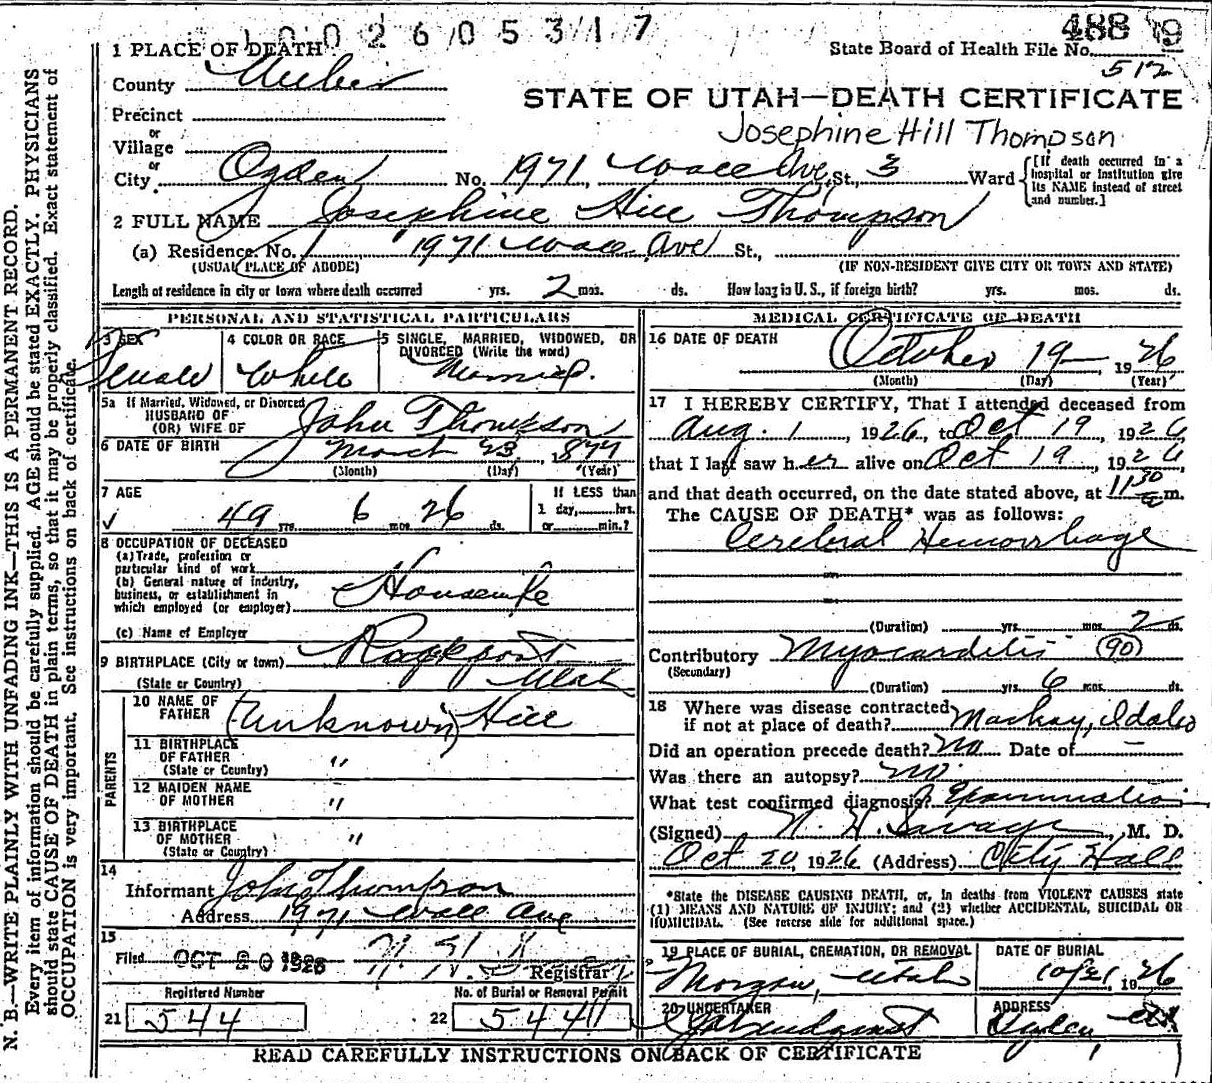 1 0 0 2 6 0 5 3 1 7
488 9
State Board of Health File No.
512
1 PLACE OF DEATH
County Weber
STATE OF UTAH—DEATH CERTIFICATE
Precinct
or
Village
Josephine Hill Thompson
or
City Ogden No. 1971, Wall Ave St., 3 Ward
[If death occurred in a hospital or institution give its NAME instead of street and number.]
2 FULL NAME Josephine Hill Thompson
(a) Residence. No. 1971 Wall Ave St.,
(USUAL PLACE OF ABODE) (IF NON-RESIDENT GIVE CITY OR TOWN AND STATE)
Length of residence in city or town where death occurred yrs. 2 mos. ds. How long in U. S., if foreign birth? yrs. mos. ds.
PERSONAL AND STATISTICAL PARTICULARS
3 SEX
Female
4 COLOR OR RACE
White
5 SINGLE, MARRIED, WIDOWED, OR DIVORCED (Write the word)
Married.
5a If Married, Widowed, or Divorced
HUSBAND OF
(OR) WIFE OF John Thompson
6 DATE OF BIRTH March 23, 1877
(Month) (Day) (Year)
7 AGE
49 yrs. 6 mos. 26 ds.
If LESS than
1 day, hrs.
or min.?
8 OCCUPATION OF DECEASED
(a) Trade, profession or
particular kind of work
(b) General nature of industry,
business, or establishment in
which employed (or employer) Housewife
(c) Name of Employer
9 BIRTHPLACE (City or town) Rockport
(State or Country) Utah
PARENTS
10 NAME OF
FATHER (Unknown) Hill
11 BIRTHPLACE
OF FATHER "
(State or Country)
12 MAIDEN NAME
OF MOTHER "
13 BIRTHPLACE
OF MOTHER "
(State or Country)
14
Informant John Thompson
Address 1971 Wall Ave
15
Filed OCT 20 1926
Registrar
Registered Number
21 544
No. of Burial or Removal Permit
22 544
MEDICAL CERTIFICATE OF DEATH
16 DATE OF DEATH
October 19— 1926
(Month) (Day) (Year)
17 I HEREBY CERTIFY, That I attended deceased from
Aug. 1, 1926, to Oct 19, 1926,
that I last saw her alive on Oct 19, 1926
and that death occurred, on the date stated above, at 11 30 a m.
The CAUSE OF DEATH* was as follows:
Cerebral Hemorrhage
(Duration) yrs. mos. 2 ds.
Contributory Myocarditis (90)
(Secondary)
(Duration) yrs. 6 mos. ds.
18 Where was disease contracted
if not at place of death? Mackay, Idaho
Did an operation precede death? No Date of —
Was there an autopsy? No.
What test confirmed diagnosis? Examination
(Signed) , M. D.
Oct 20, 1926 (Address) City Hall
*State the DISEASE CAUSING DEATH, or, in deaths from VIOLENT CAUSES state
(1) MEANS AND NATURE OF INJURY; and (2) whether ACCIDENTAL, SUICIDAL OR
HOMICIDAL. (See reverse side for additional space.)
19 PLACE OF BURIAL, CREMATION, OR REMOVAL
Morgan, Utah
DATE OF BURIAL
10/21, 1926
20 UNDERTAKER
ADDRESS
Ogden,
READ CAREFULLY INSTRUCTIONS ON BACK OF CERTIFICATE
N. B.—WRITE PLAINLY WITH UNFADING INK—THIS IS A PERMANENT RECORD.
Every item of information should be carefully supplied. AGE should be stated EXACTLY. PHYSICIANS
should state CAUSE OF DEATH in plain terms, so that it may be properly classified. Exact statement of
OCCUPATION is very important. See instructions on back of certificate.